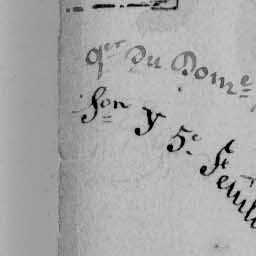 qer Du Dome
Son Y 5e Feuil